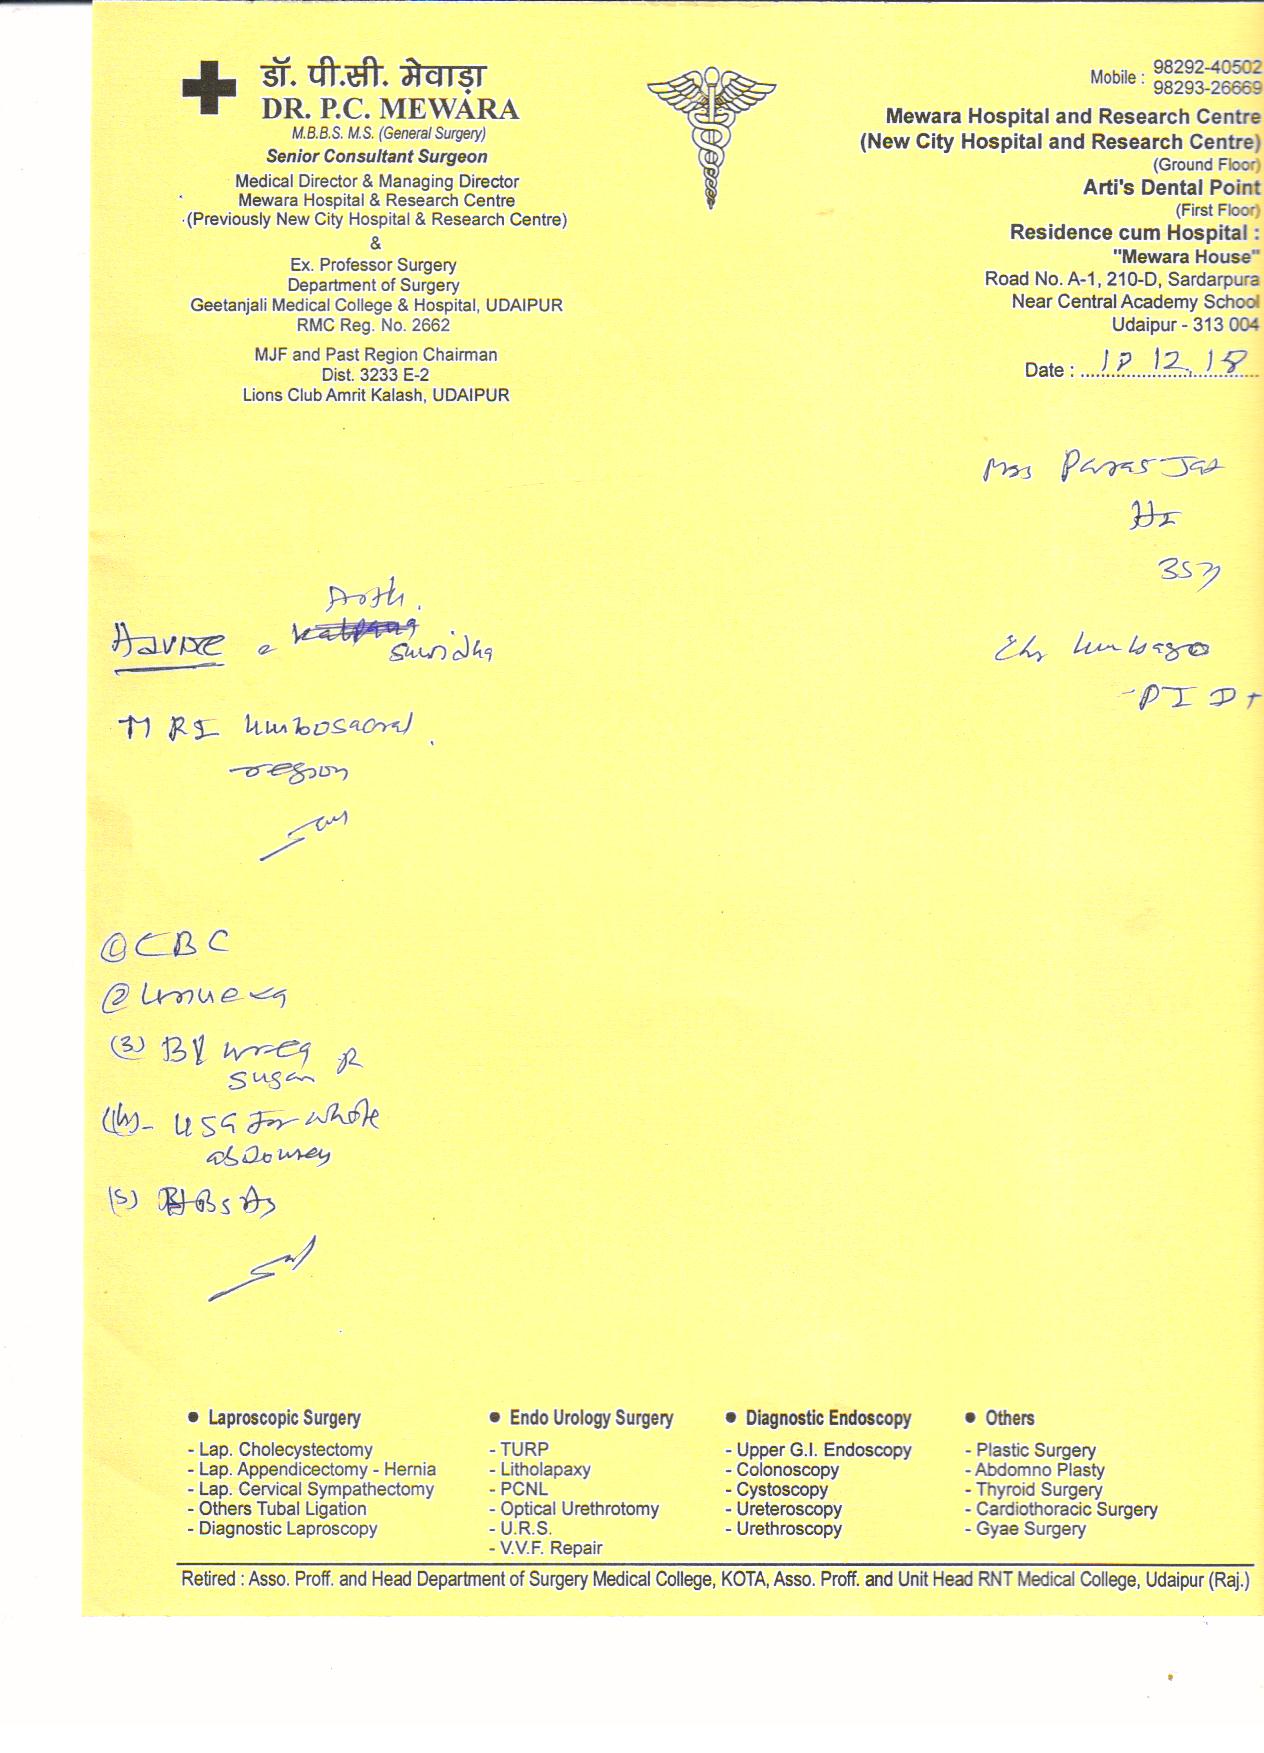 डॉ. पी.सी. मेवाड़ा
DR. P.C. MEWARA
M.B.B.S. M.S. (General Surgery)
Senior Consultant Surgeon
Medical Director & Managing Director
Mewara Hospital & Research Centre
(Previously New City Hospital & Research Centre)
&
Ex. Professor Surgery
Department of Surgery
Geetanjali Medical College & Hospital, UDAIPUR
RMC Reg. No. 2662
MJF and Past Region Chairman
Dist. 3233 E-2
Lions Club Amrit Kalash, UDAIPUR
Mobile : 98292-40502
98293-26669
Mewara Hospital and Research Centre
(New City Hospital and Research Centre)
(Ground Floor)
Arti's Dental Point
(First Floor)
Residence cum Hospital :
"Mewara House"
Road No. A-1, 210-D, Sardarpura
Near Central Academy School
Udaipur - 313 004
Date : 12.18
Paras
Lumbago
PID+
Advice
MRI Lumbosacral
region
CBC
(2)
(3) Bl Urea
Sugar R
(4) - USG For whole
abdomen
(5) HBsAg
● Laproscopic Surgery
- Lap. Cholecystectomy
- Lap. Appendicectomy - Hernia
- Lap. Cervical Sympathectomy
- Others Tubal Ligation
- Diagnostic Laproscopy
● Endo Urology Surgery
- TURP
- Litholapaxy
- PCNL
- Optical Urethrotomy
- U.R.S.
- V.V.F. Repair
● Diagnostic Endoscopy
- Upper G.I. Endoscopy
- Colonoscopy
- Cystoscopy
- Ureteroscopy
- Urethroscopy
● Others
- Plastic Surgery
- Abdomno Plasty
- Thyroid Surgery
- Cardiothoracic Surgery
- Gyae Surgery
Retired : Asso. Proff. and Head Department of Surgery Medical College, KOTA, Asso. Proff. and Unit Head RNT Medical College, Udaipur (Raj.)